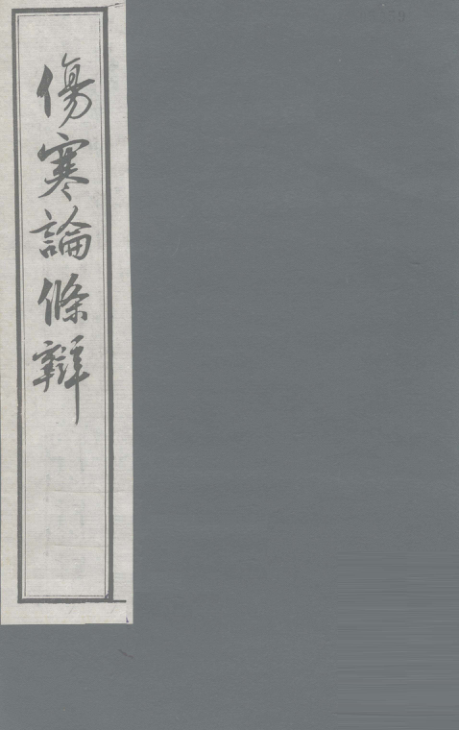 傷寒論條辯